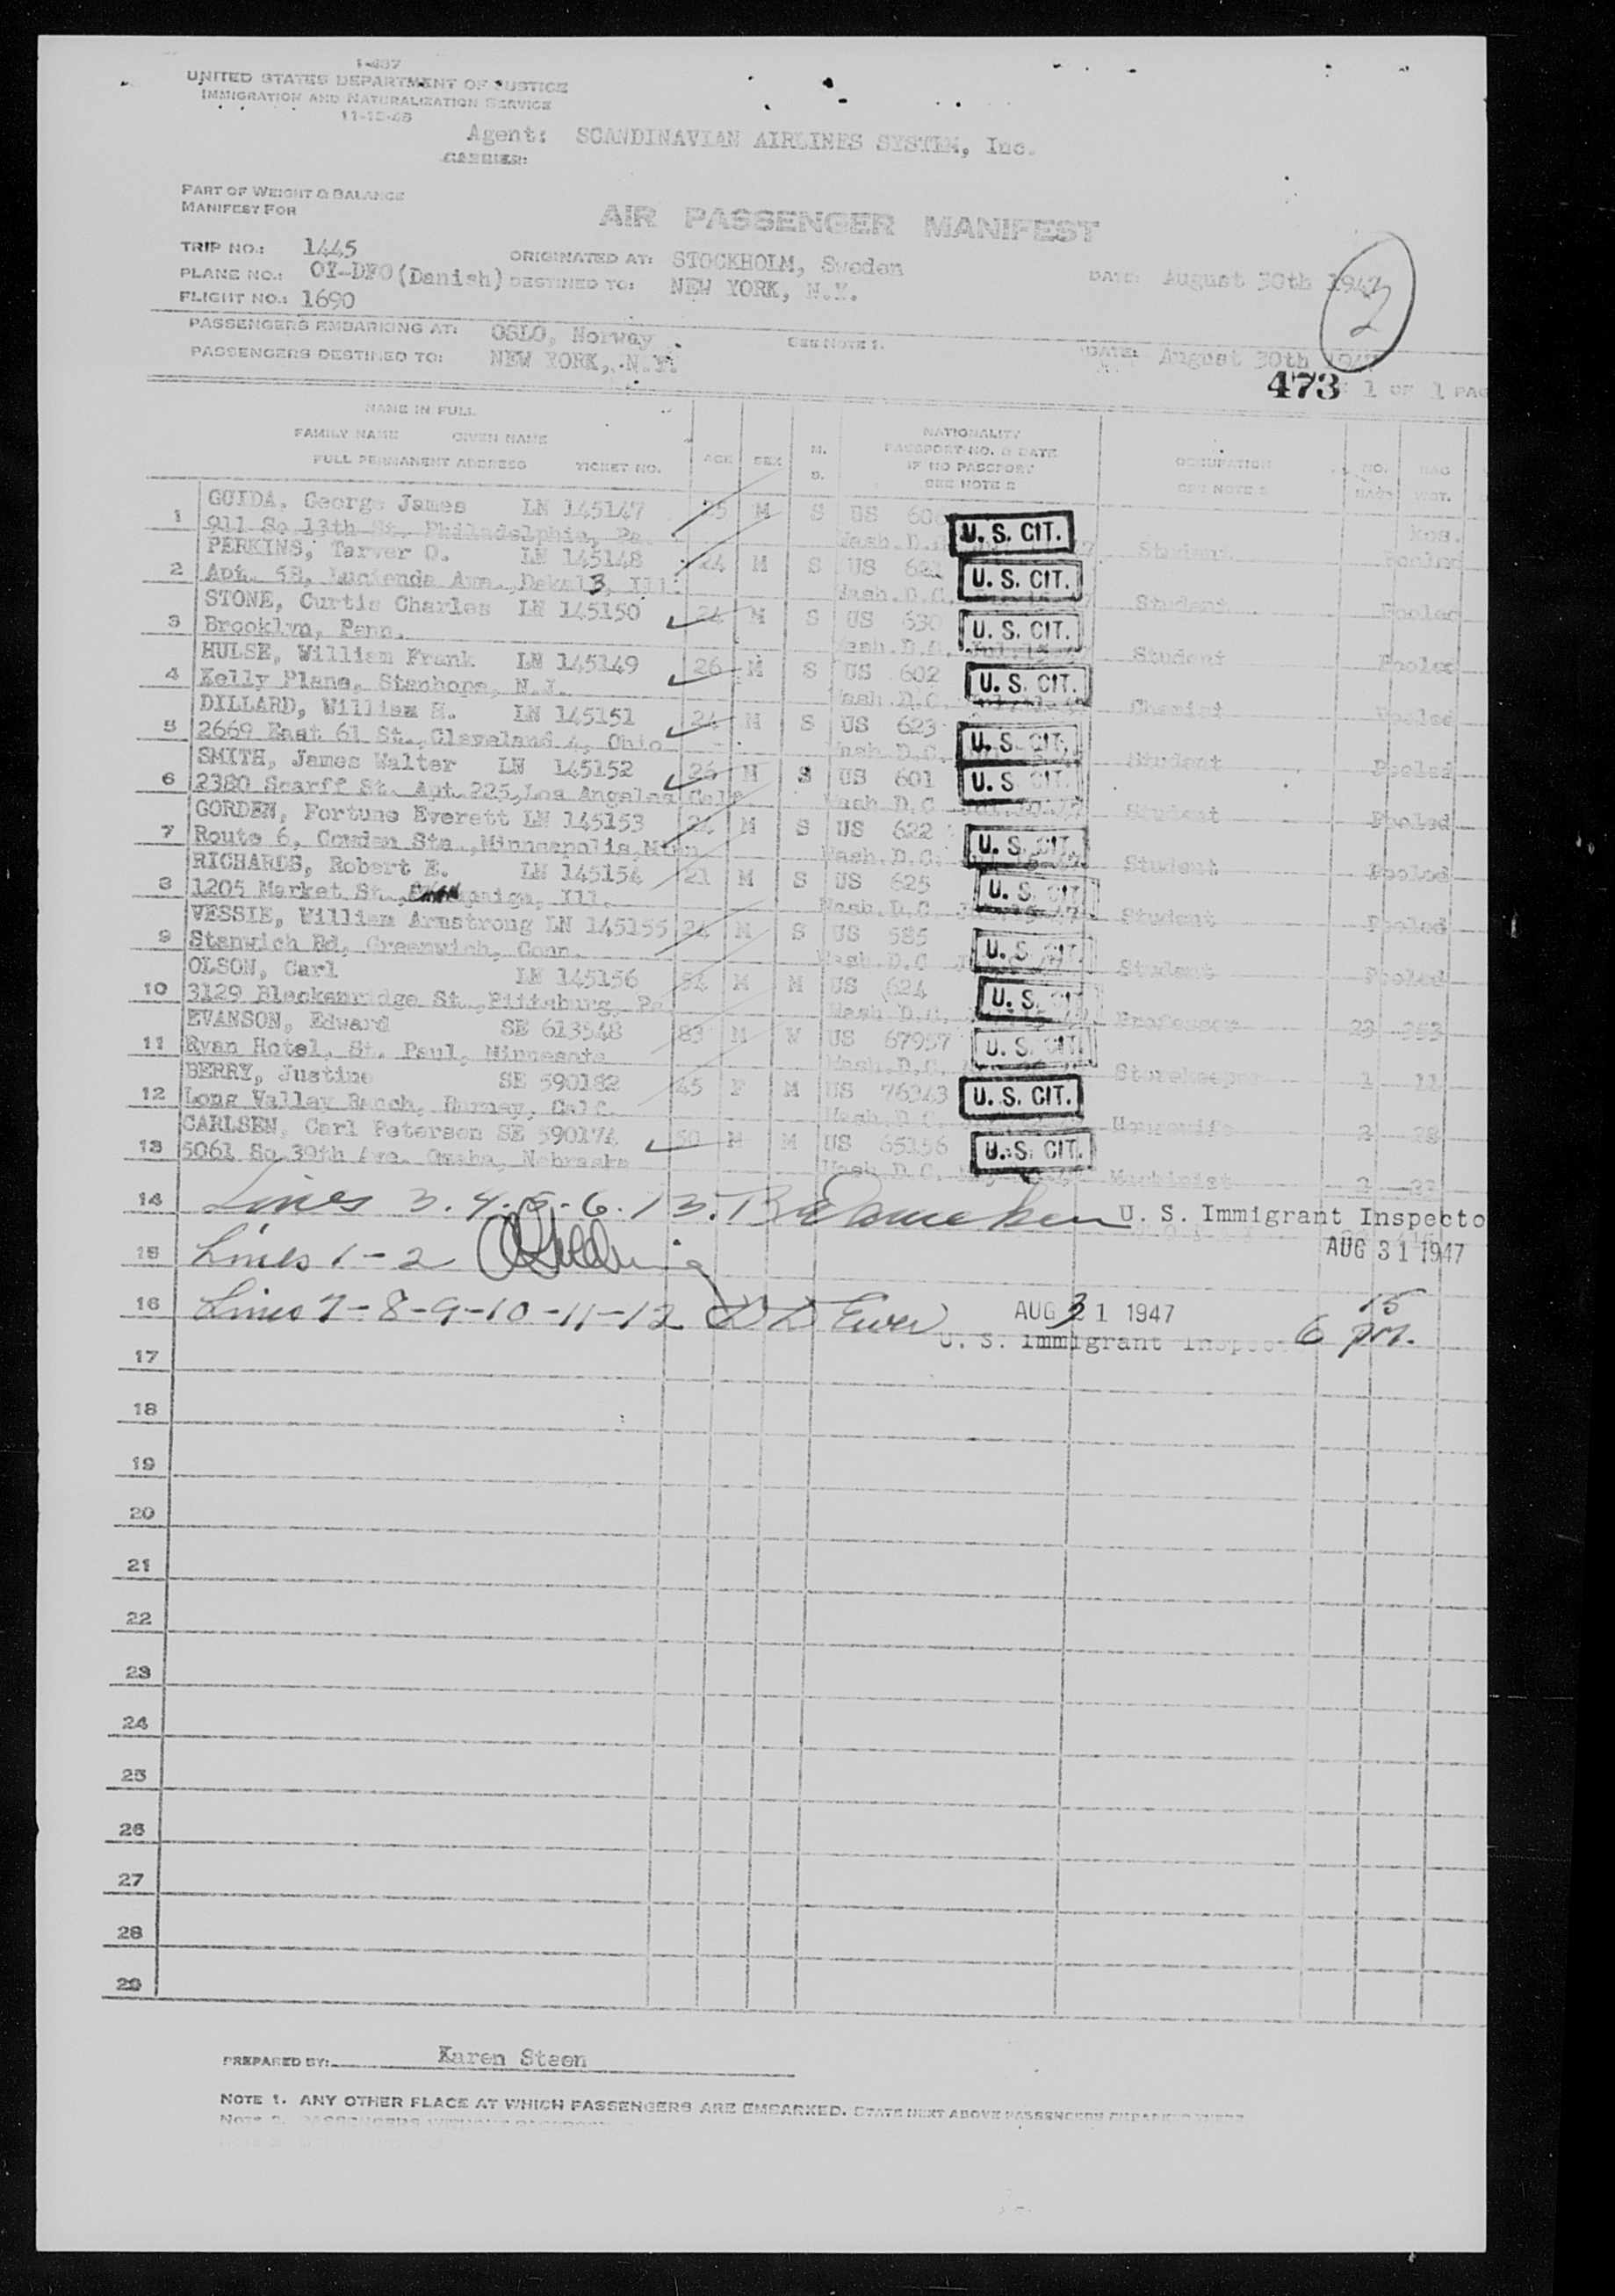 I-437
UNITED STATES DEPARTMENT OF JUSTICE
IMMIGRATION AND NATURALIZATION SERVICE
Agent: SCANDINAVIAN AIRLINES SYSTEM, Inc.
CARRIER:
PART OF WEIGHT & BALANCE
MANIFEST FOR
AIR PASSENGER MANIFEST
TRIP NO.: 1445 ORIGINATED AT: STOCKHOLM, Sweden
PLANE NO.: OY-DFO (Danish) DESTINED TO: NEW YORK, N.Y. DATE: August 30th 1947
FLIGHT NO.: 1690
2
PASSENGERS EMBARKING AT: OSLO, Norway SEE NOTE 1.
PASSENGERS DESTINED TO: NEW YORK, N.Y. DATE: August 30th 1947
473 1 OF 1 PAG
NAME IN FULL
FAMILY NAME GIVEN NAME
FULL PERMANENT ADDRESS TICKET NO. AGE SEX M. S. NATIONALITY PASSPORT NO. & DATE IF NO PASSPORT SEE NOTE 2 OCCUPATION SEE NOTE 2 NO. BAGS BAG WGT.
1 GUIDA, George James LN 145147 25 M S US U. S. CIT. Student Kgs.
911 So 13th St., Philadelphia, Pa. Wash.D.C. Pooled
2 PERKINS, Tarver O. LN 145148 24 M S US 621 U. S. CIT. Student Pooled
Apt. 5B, Lucienda Ave., Dekalb, Ill. Wash.D.C.
3 STONE, Curtis Charles LN 145150 24 M S US 630 U. S. CIT. Student Pooled
Brooklyn, Penn. Wash.D.C.
4 HULSE, William Frank LN 145149 26 M S US 602 U. S. CIT. Chemist Pooled
Kelly Place, Stanhope, N.J. Wash.D.C.
5 DILLARD, William H. LN 145151 24 M S US 623 U. S. CIT. Student Pooled
2669 East 61 St., Cleveland 4, Ohio Wash.D.C.
6 SMITH, James Walter LN 145152 26 M S US 601 U. S. CIT. Student Pooled
2380 Scarff St. Apt. 225, Los Angeles Calf. Wash.D.C
7 GORDEN, Fortune Everett LN 145153 24 M S US 622 U. S. CIT. Student Pooled
Route 6, Cowden Sta., Minneapolis, Minn Wash.D.C.
8 RICHARDS, Robert E. LN 145154 21 M S US 625 U. S. CIT. Student Pooled
1205 Market St., Ill. Wash.D.C
9 VESSIE, William Armstrong LN 145155 24 M S US 585 U. S. CIT. Student Pooled
Stanwich Rd, Greenwich, Conn. Wash.D.C
10 OLSON, Carl LN 145156 54 M M US 624 U. S. CIT. Professor 23 253
3129 Bleckenridge St., Pittsburg, Pa. Wash D.C.
11 EVANSON, Edward SE 613548 83 M W US 67957 U. S. CIT. Storekeeper 1 11
Ryan Hotel, St. Paul, Minnesota Wash.D.C.
12 BERRY, Justine SE 590182 45 F M US 76343 U. S. CIT. Housewife 2 28
Long Valley Ranch, Burney, Calf. Wash.D.C.
13 CARLSEN, Carl Petersen SE 590174 50 M M US 65156 U. S. CIT. Machinist 2 23
5061 So 30th Ave. Omaha, Nebraska Wash.D.C.
14 Lines 3.4.5.6.13. U. S. Immigrant Inspecto
15 Lines 1-2 AUG 31 1947
16 Lines 7-8-9-10-11-12 AUG 31 1947 6 15 pm.
U. S. Immigrant Inspec
17
18
19
20
21
22
23
24
25
26
27
28
29
PREPARED BY: Karen Steen
NOTE 1. ANY OTHER PLACE AT WHICH PASSENGERS ARE EMBARKED. STATE NEXT ABOVE PASSENGERS EMBARKED